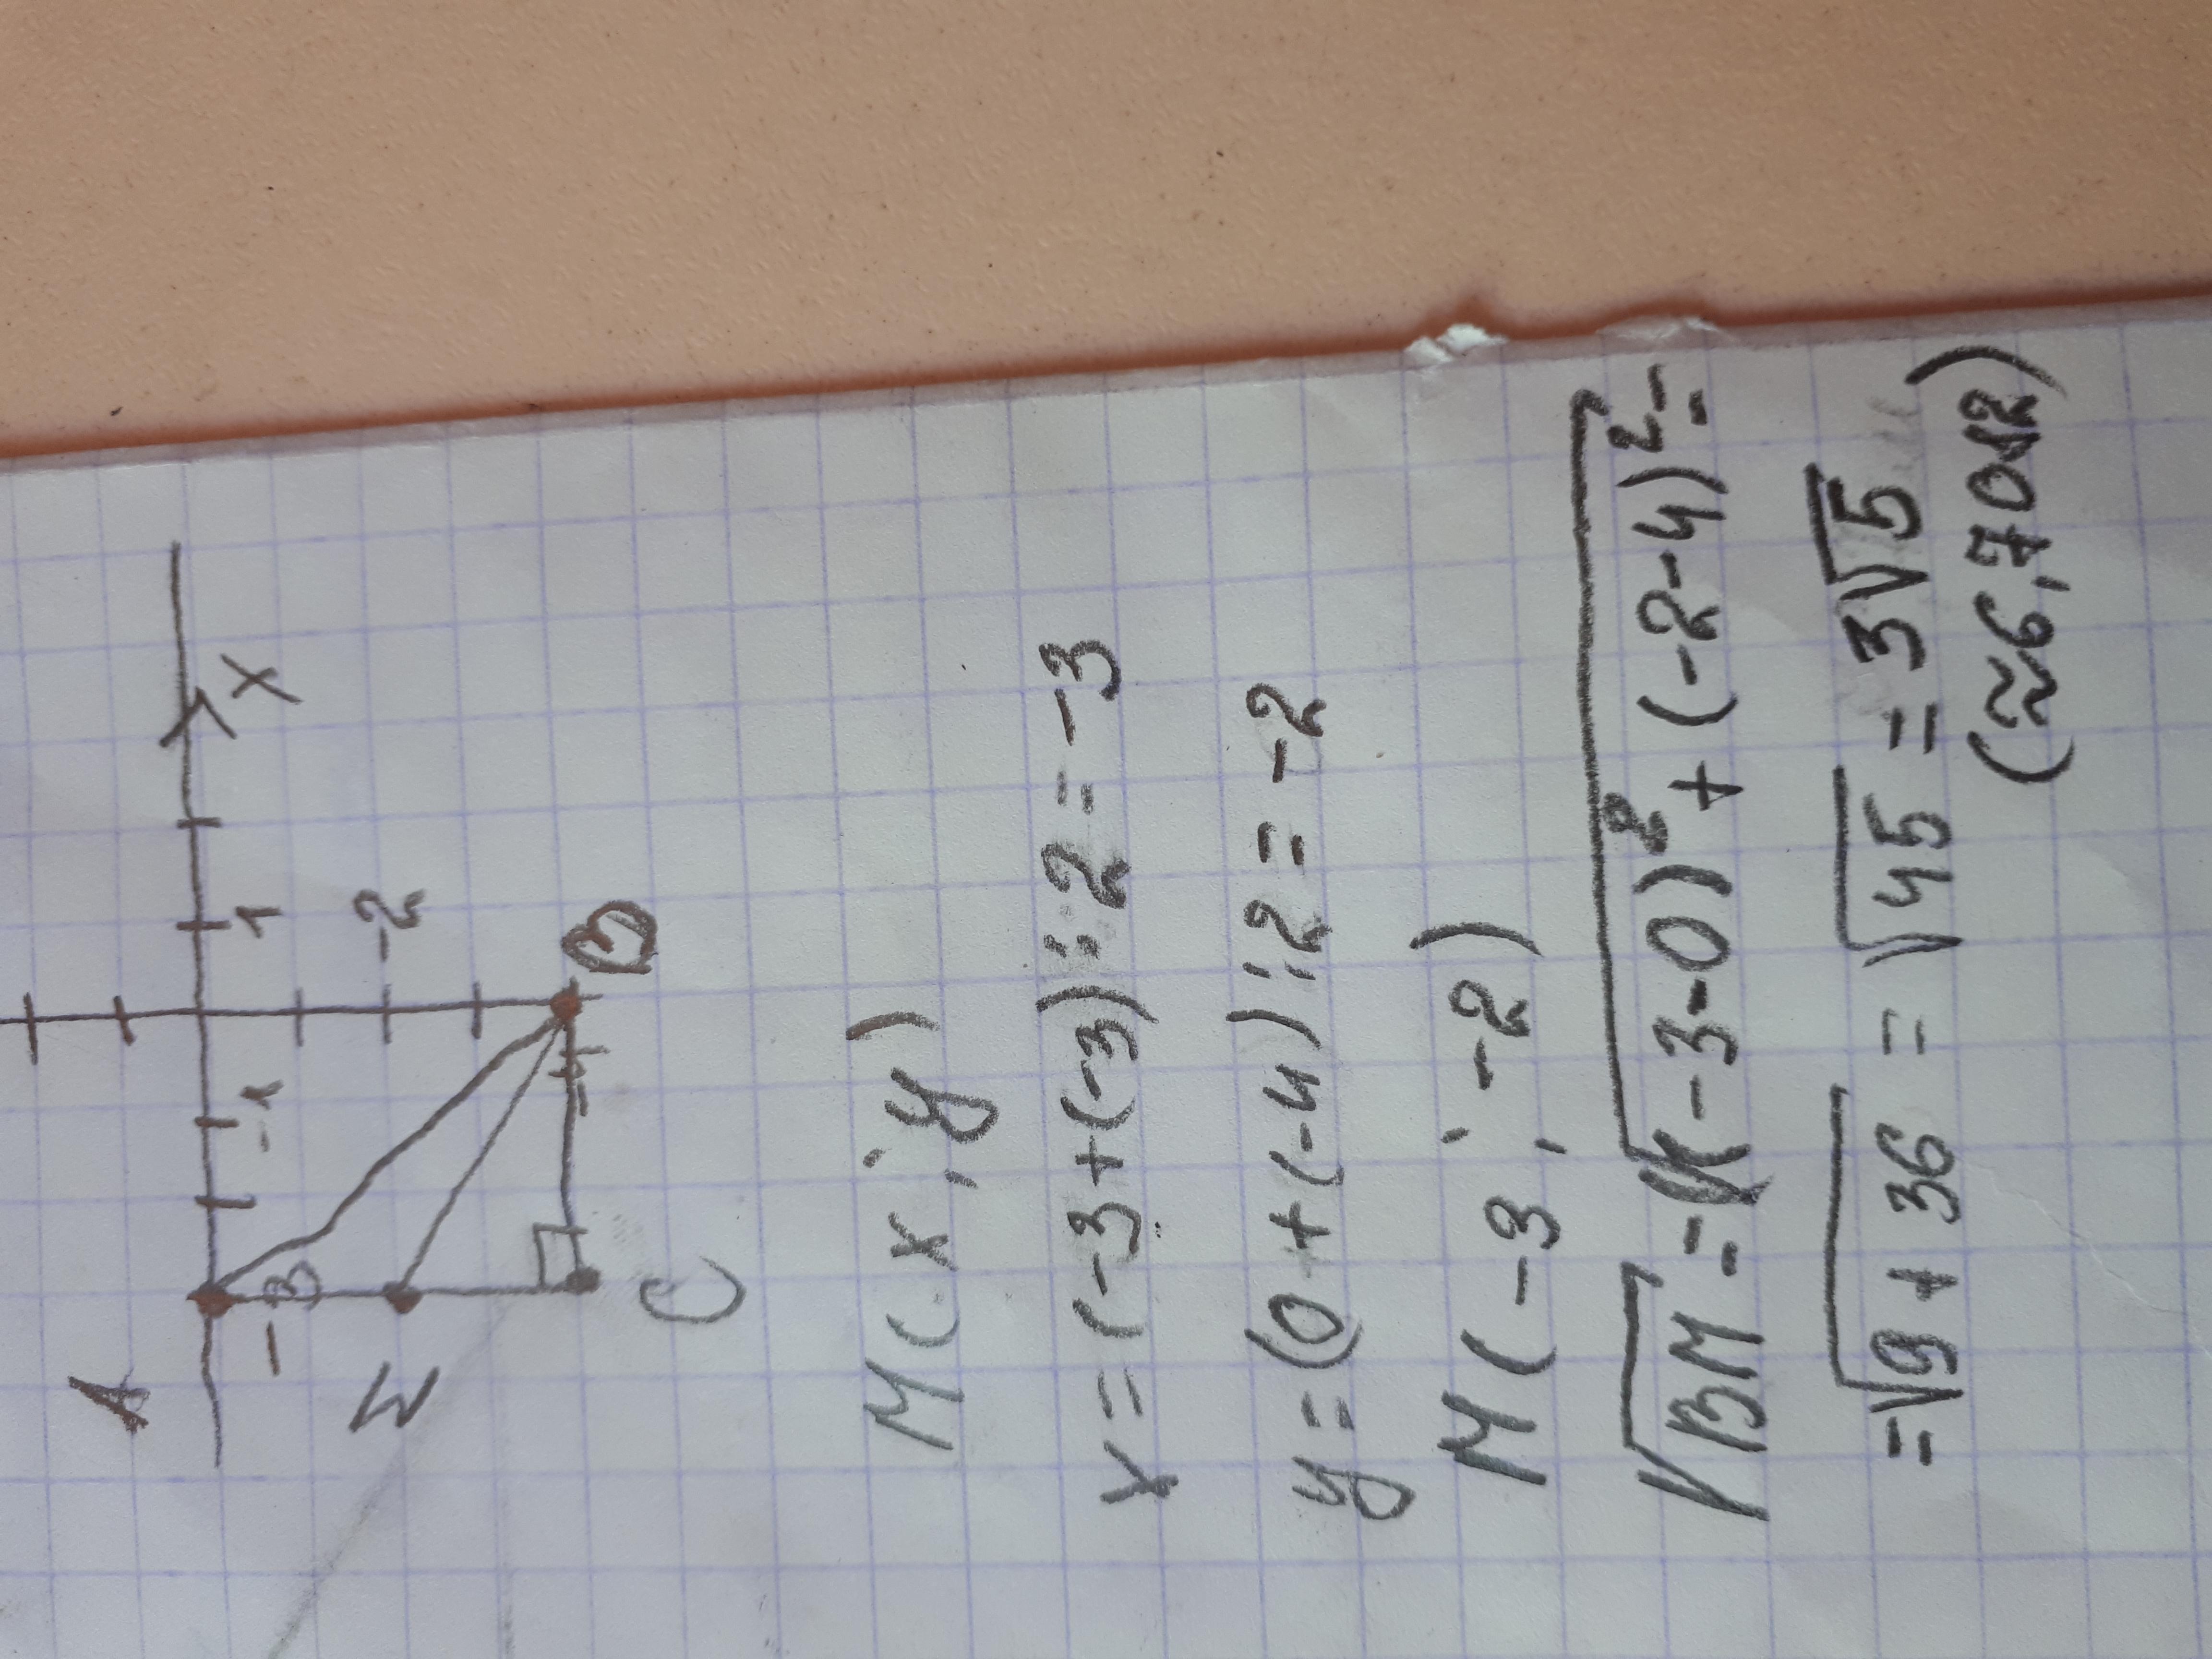 A
-3
-1
1
X
M
-2
-4
B
C
M(x;y)
x=(-3+(-3)):2=-3
y=(0+(-4)):2=-2
M(-3;-2)
√BM=√(-3-0)²+(-2-4)²=
=√9+36=√45=3√5
(≈6,7082)